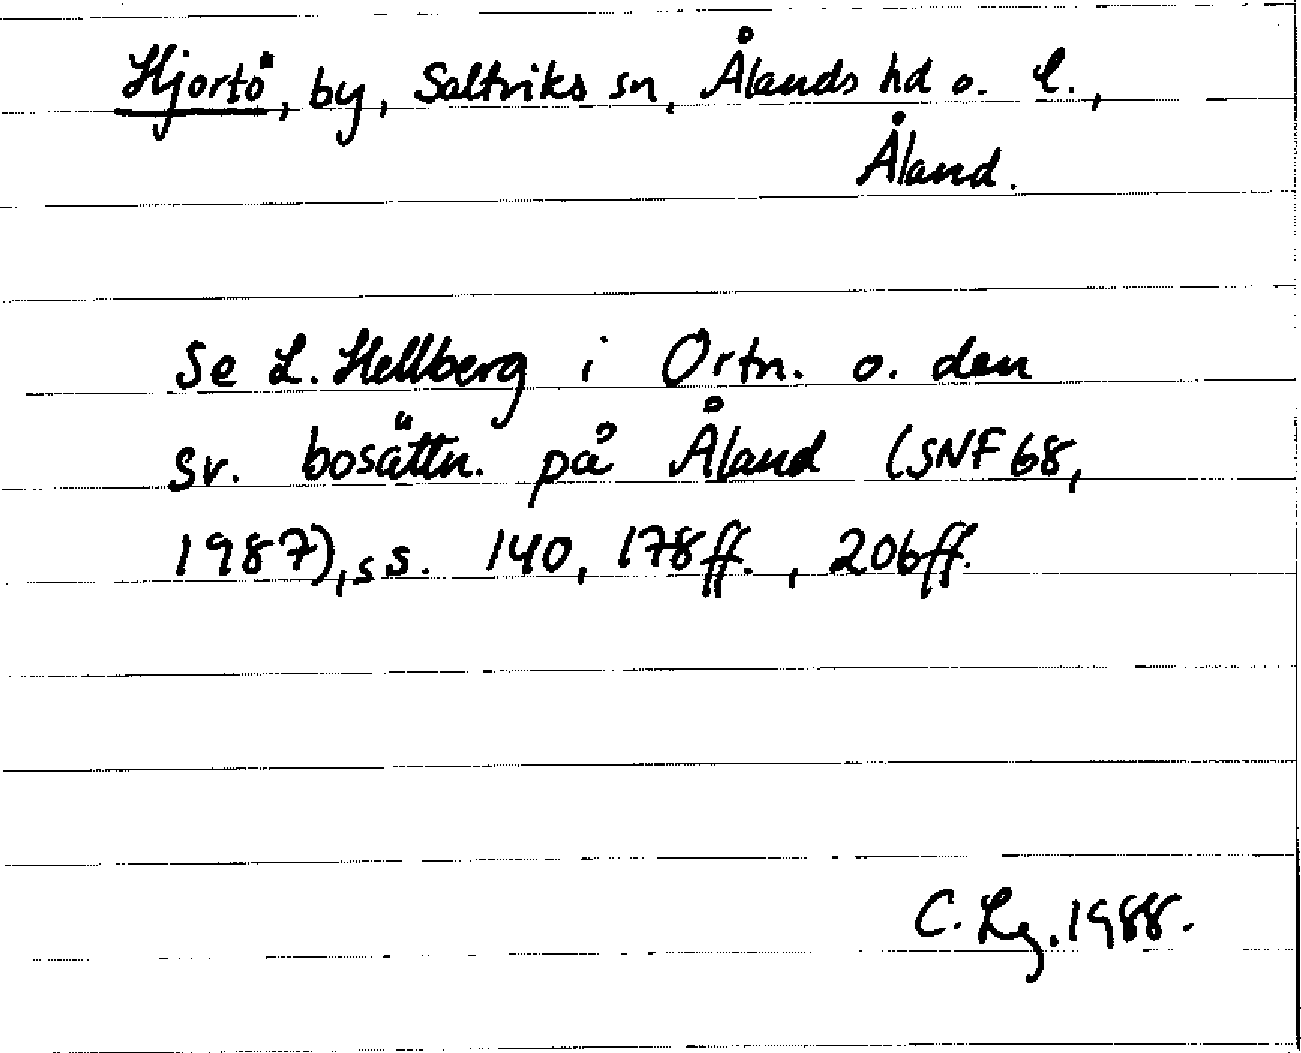 Hjortö, by, Saltviks sn, Ålands hd o. l.,
Åland.
Se L. Hellberg i Ortn. o. den
sv. bosättn. på Åland (SNF 68,
1987), ss. 140, 178ff., 206ff.
C. Lg. 1988.